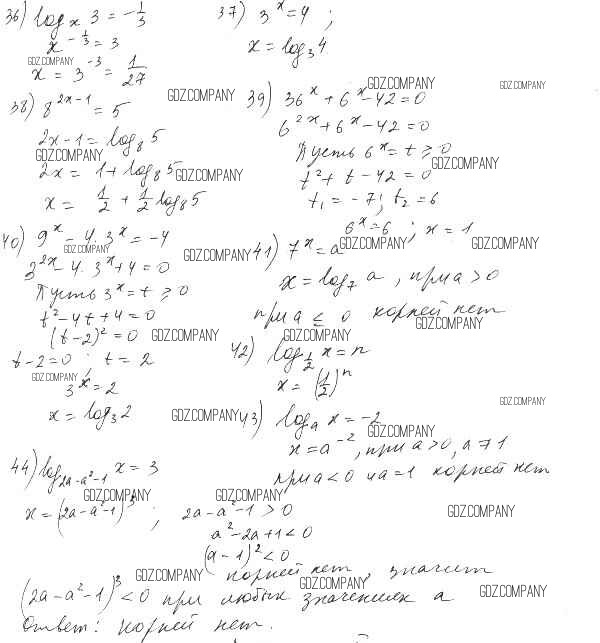 36) log_x 3 = -1/3
x^(-1/3) = 3
GDZ.COMPANY
x = 3^(-3) = 1/27
37) 3^x = 4 ;
x = log_3 4
GDZ.COMPANY
38) 8^(2x-1) = 5
2x-1 = log_8 5
GDZ.COMPANY
2x = 1 + log_8 5
GDZ.COMPANY
x = 1/2 + 1/2 log_8 5
GDZ.COMPANY
GDZ.COMPANY
39) 36^x + 6^x - 42 = 0
6^(2x) + 6^x - 42 = 0
Пусть 6^x = t > 0
GDZ.COMPANY
t^2 + t - 42 = 0
t_1 = -7 ; t_2 = 6
6^x = 6 ; x = 1
40) 9^x - 4·3^x = -4
GDZ.COMPANY
GDZ.COMPANY
3^(2x) - 4·3^x + 4 = 0
Пусть 3^x = t > 0
t^2 - 4t + 4 = 0
(t-2)^2 = 0
GDZ.COMPANY
t-2 = 0 ; t = 2
GDZ.COMPANY
3^x = 2
x = log_3 2
GDZ.COMPANY
41) 7^x = a
GDZ.COMPANY
GDZ.COMPANY
x = log_7 a , при a > 0
при a ≤ 0 корней нет
GDZ.COMPANY
GDZ.COMPANY
42) log_(1/2) x = n
x = (1/2)^n
GDZ.COMPANY
43) log_a x = -2
GDZ.COMPANY
x = a^(-2) , при a > 0, a ≠ 1
при a < 0 и a = 1 корней нет
44) log_(2a-a^2-1) x = 3
GDZ.COMPANY
GDZ.COMPANY
GDZ.COMPANY
x = (2a-a^2-1)^3 ; 2a-a^2-1 > 0
a^2-2a+1 < 0
(a-1)^2 < 0
GDZ.COMPANY
корней нет, значит
GDZ.COMPANY
GDZ.COMPANY
(2a-a^2-1)^3 < 0 при любых значениях a
Ответ: корней нет.